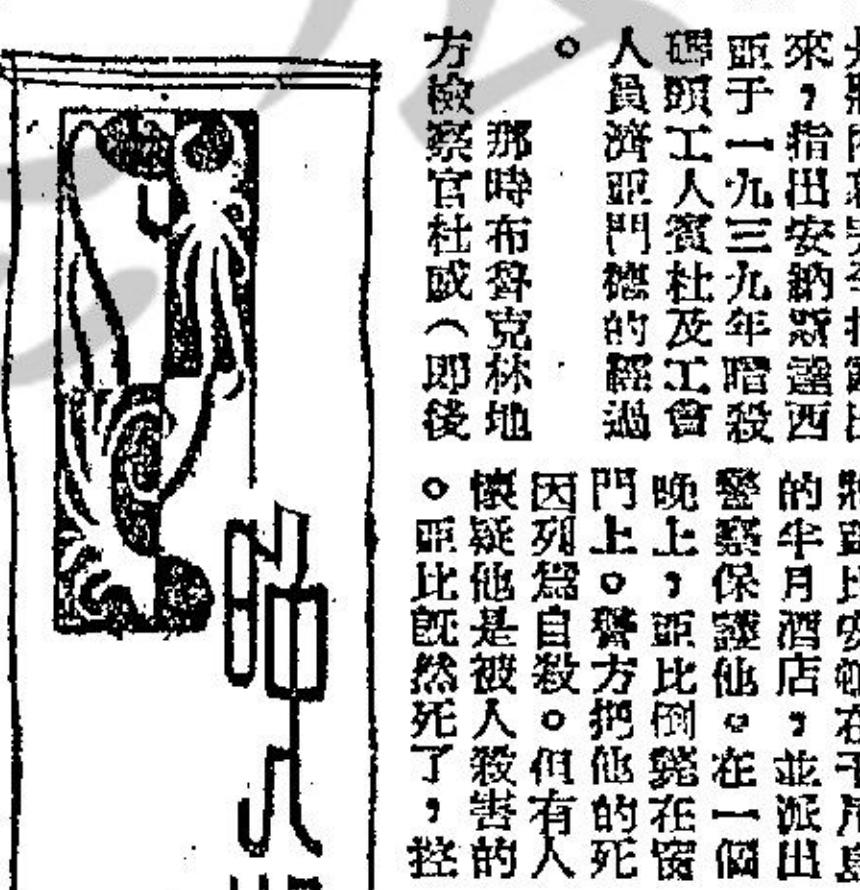 來，指出安納斯達西
亞于一九三九年暗殺
碼頭工人賓杜及工會
人員濟亞門德的經過
。
那時布魯克林地
方檢察官杜威（即後
的半月酒店，並派出
警察保護他。在一個
晚上，亞比倒斃在窗
門上。警方把他的死
因列爲自殺。但有人
懷疑他是被人殺害的
。亞比既然死了，控